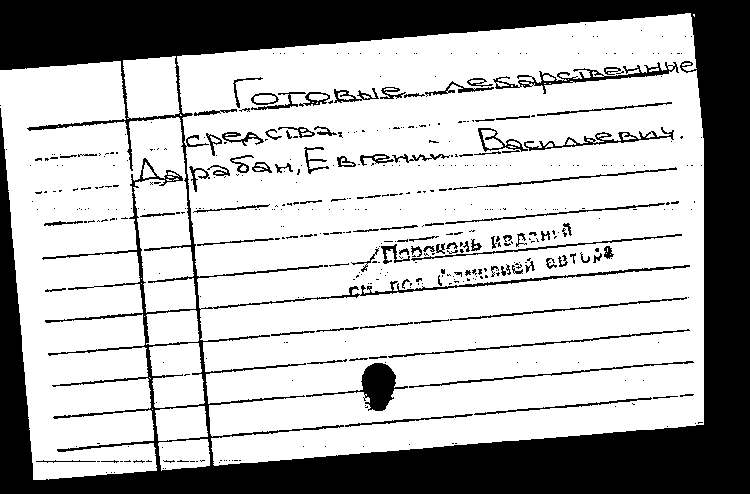 Готовые лекарственные
средства.
Дарабан, Евгений Васильевич.
Перечень изданий
см. под фамилией автора